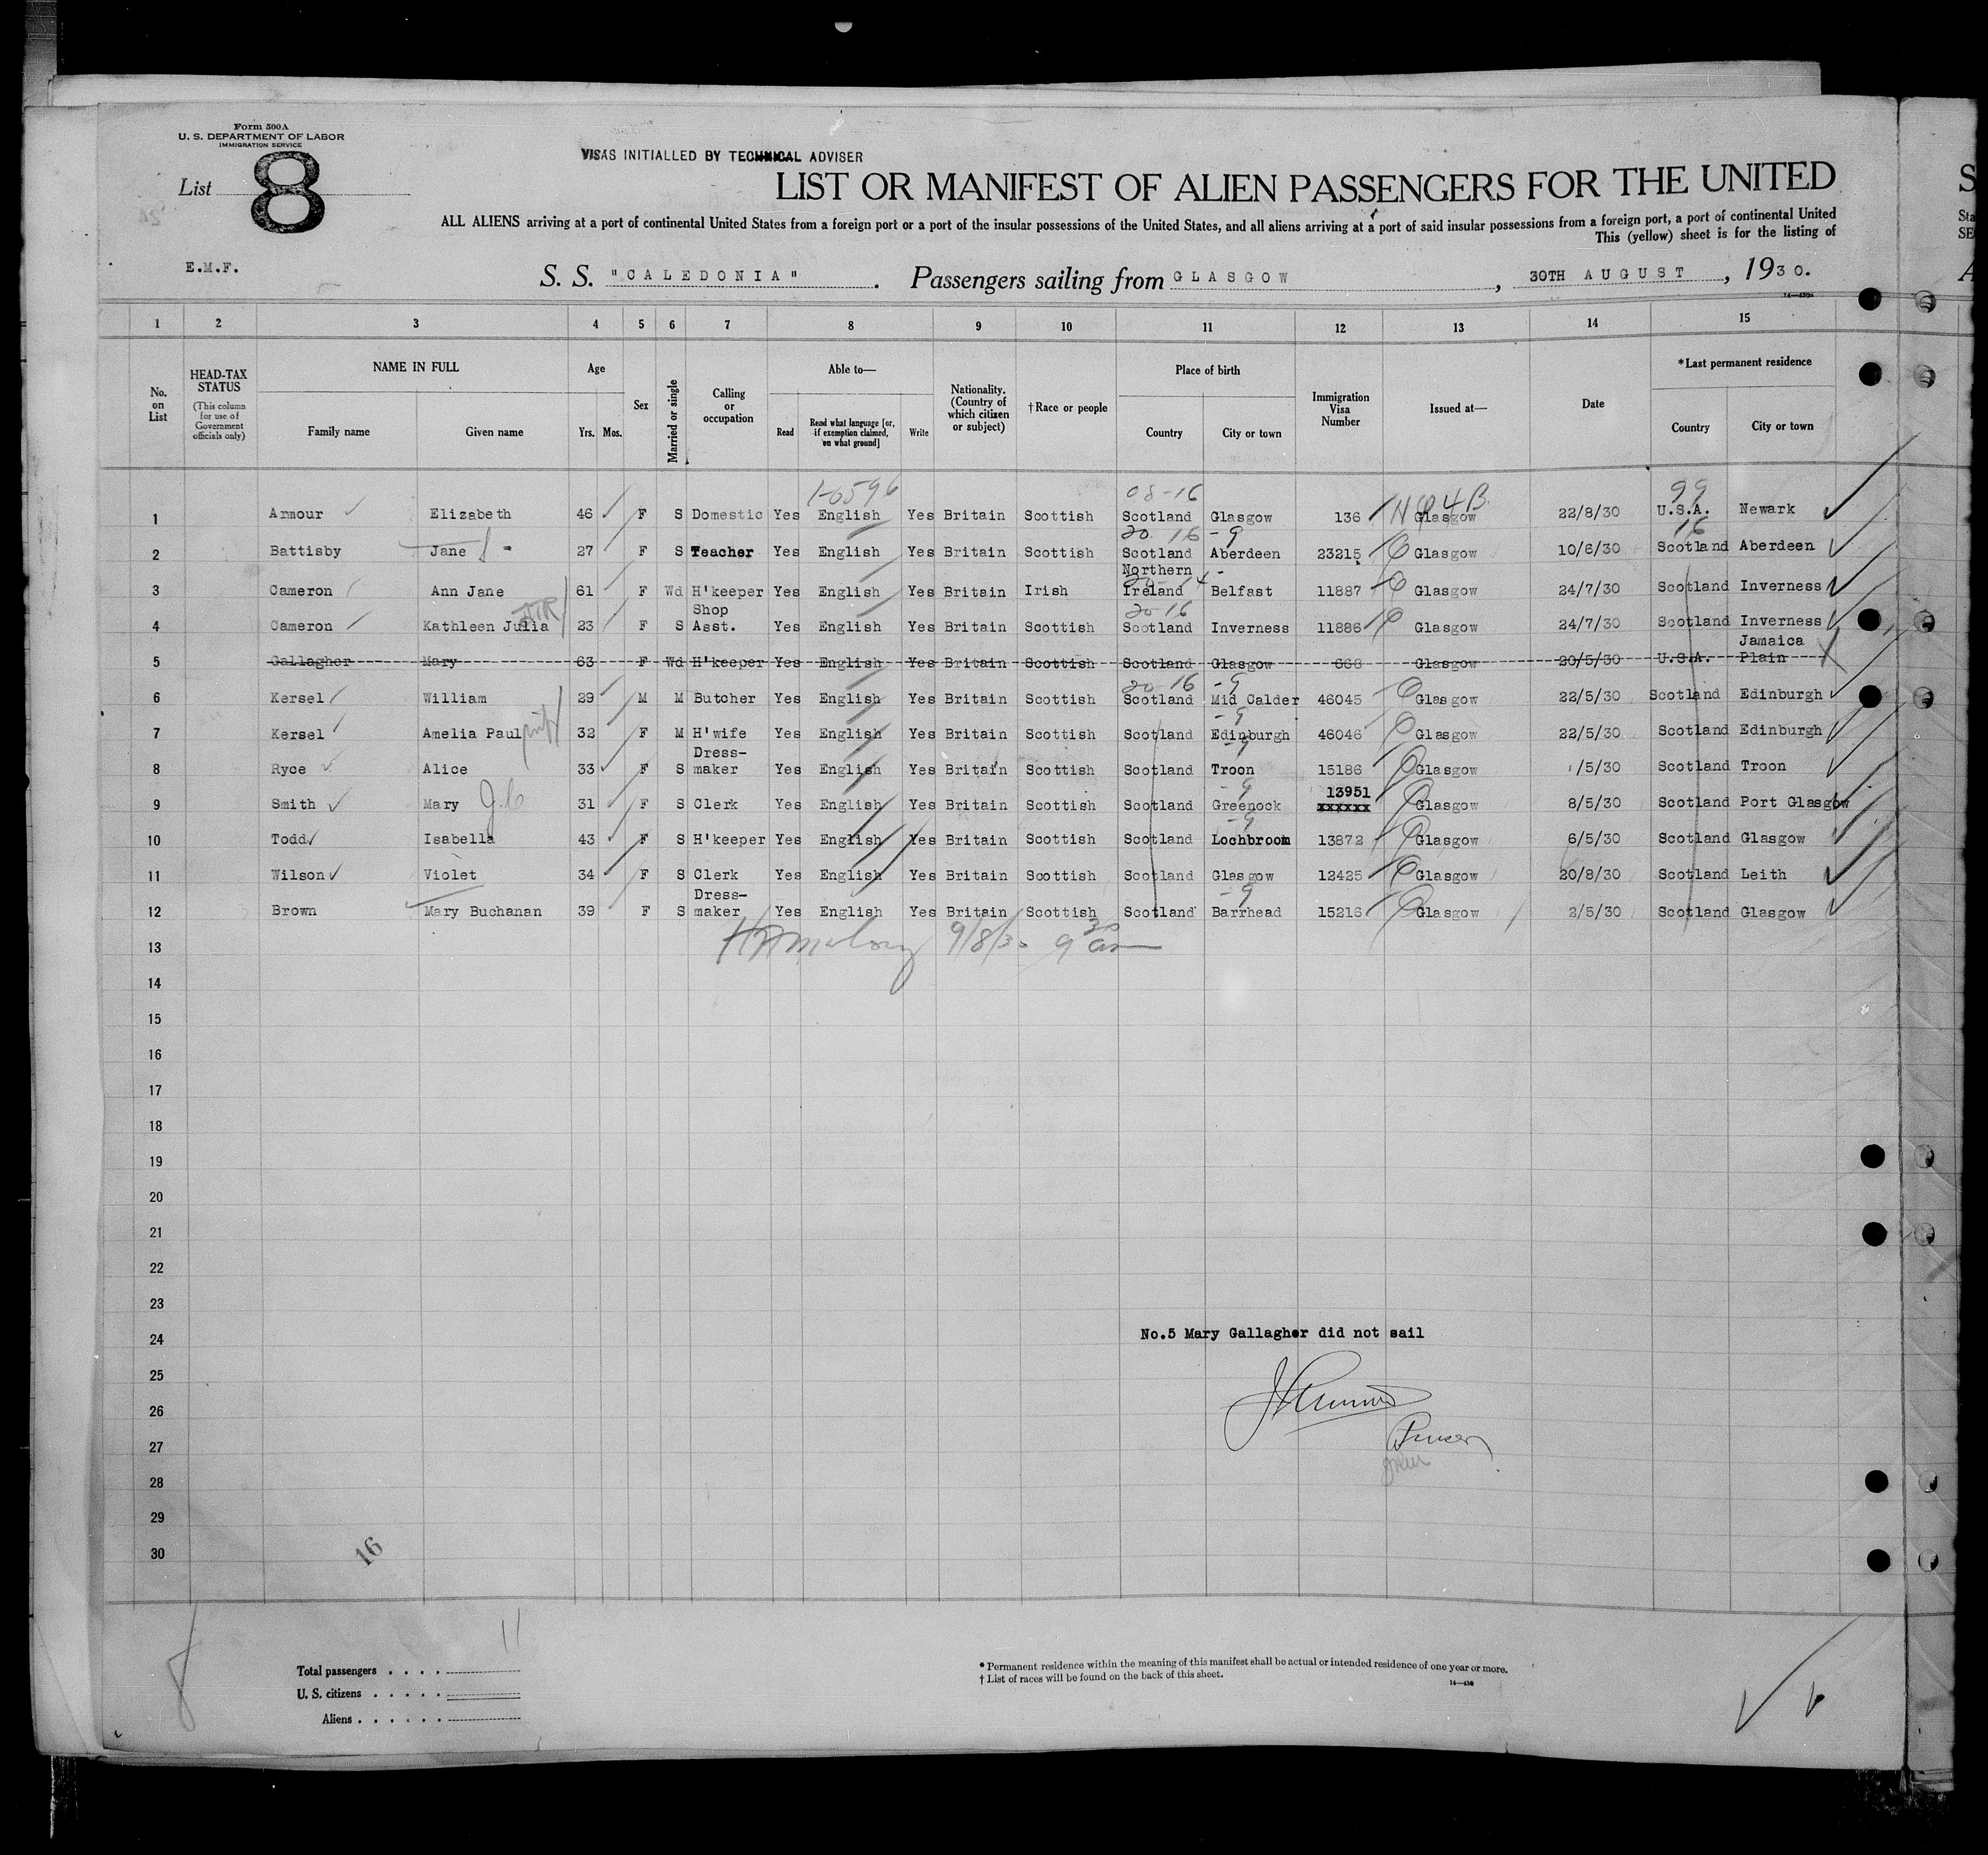 Form 500A
U. S. DEPARTMENT OF LABOR
IMMIGRATION SERVICE
List 8
VISAS INITIALLED BY TECHNICAL ADVISER
LIST OR MANIFEST OF ALIEN PASSENGERS FOR THE UNITED
ALL ALIENS arriving at a port of continental United States from a foreign port or a port of the insular possessions of the United States, and all aliens arriving at a port of said insular possessions from a foreign port, a port of continental United
This (yellow) sheet is for the listing of
E.M.F.
S. S. "CALEDONIA" . Passengers sailing from GLASGOW , 30TH AUGUST , 1930.
1 2 3 4 5 6 7 8 9 10 11 12 13 14 15
No. on List
HEAD-TAX STATUS (This column for use of Government officials only)
NAME IN FULL Family name Given name
Age Yrs. Mos.
Sex
Married or single
Calling or occupation
Able to— Read Read what language [or, if exemption claimed, on what ground] Write
Nationality. (Country of which citizen or subject)
†Race or people
Place of birth Country City or town
Immigration Visa Number
Issued at—
Date
*Last permanent residence Country City or town
1-6596 08-16 99
1 Armour Elizabeth 46 F S Domestic Yes English Yes Britain Scottish Scotland Glasgow 136 Glasgow 22/8/30 U.S.A. Newark
20 16 -9 16
2 Battisby Jane 27 F S Teacher Yes English Yes Britain Scottish Scotland Aberdeen 23215 Glasgow 10/6/30 Scotland Aberdeen
3 Cameron Ann Jane 61 F Wd H'keeper Yes English Yes Britain Irish Northern Ireland Belfast 11887 Glasgow 24/7/30 Scotland Inverness
20-16
4 Cameron Kathleen Julia 23 F S Shop Asst. Yes English Yes Britain Scottish Scotland Inverness 11886 Glasgow 24/7/30 Scotland Inverness
5 Gallagher Mary 63 F Wd H'keeper Yes English Yes Britain Scottish Scotland Glasgow 668 Glasgow 20/5/30 U.S.A. Jamaica Plain
20-16 -9
6 Kersel William 29 M M Butcher Yes English Yes Britain Scottish Scotland Mid Calder 46045 Glasgow 22/5/30 Scotland Edinburgh
-9
7 Kersel Amelia Paul 32 F M H'wife Yes English Yes Britain Scottish Scotland Edinburgh 46046 Glasgow 22/5/30 Scotland Edinburgh
-9
8 Ryce Alice 33 F S Dress-maker Yes English Yes Britain Scottish Scotland Troon 15186 Glasgow /5/30 Scotland Troon
-9
9 Smith Mary 31 F S Clerk Yes English Yes Britain Scottish Scotland Greenock 13951 xxxxxx Glasgow 8/5/30 Scotland Port Glasgow
-9
10 Todd Isabella 43 F S H'keeper Yes English Yes Britain Scottish Scotland Lochbroom 13872 Glasgow 6/5/30 Scotland Glasgow
11 Wilson Violet 34 F S Clerk Yes English Yes Britain Scottish Scotland Glasgow 12425 Glasgow 20/8/30 Scotland Leith
-9
12 Brown Mary Buchanan 39 F S Dress-maker Yes English Yes Britain Scottish Scotland Barrhead 15216 Glasgow 2/5/30 Scotland Glasgow
13 9/8/30 9 30 am
14
15
16
17
18
19
20
21
22
23
24 No.5 Mary Gallagher did not sail
25
26
27 Purser
28
29
30
16
8
11
Total passengers
U. S. citizens
Aliens
* Permanent residence within the meaning of this manifest shall be actual or intended residence of one year or more.
† List of races will be found on the back of this sheet.